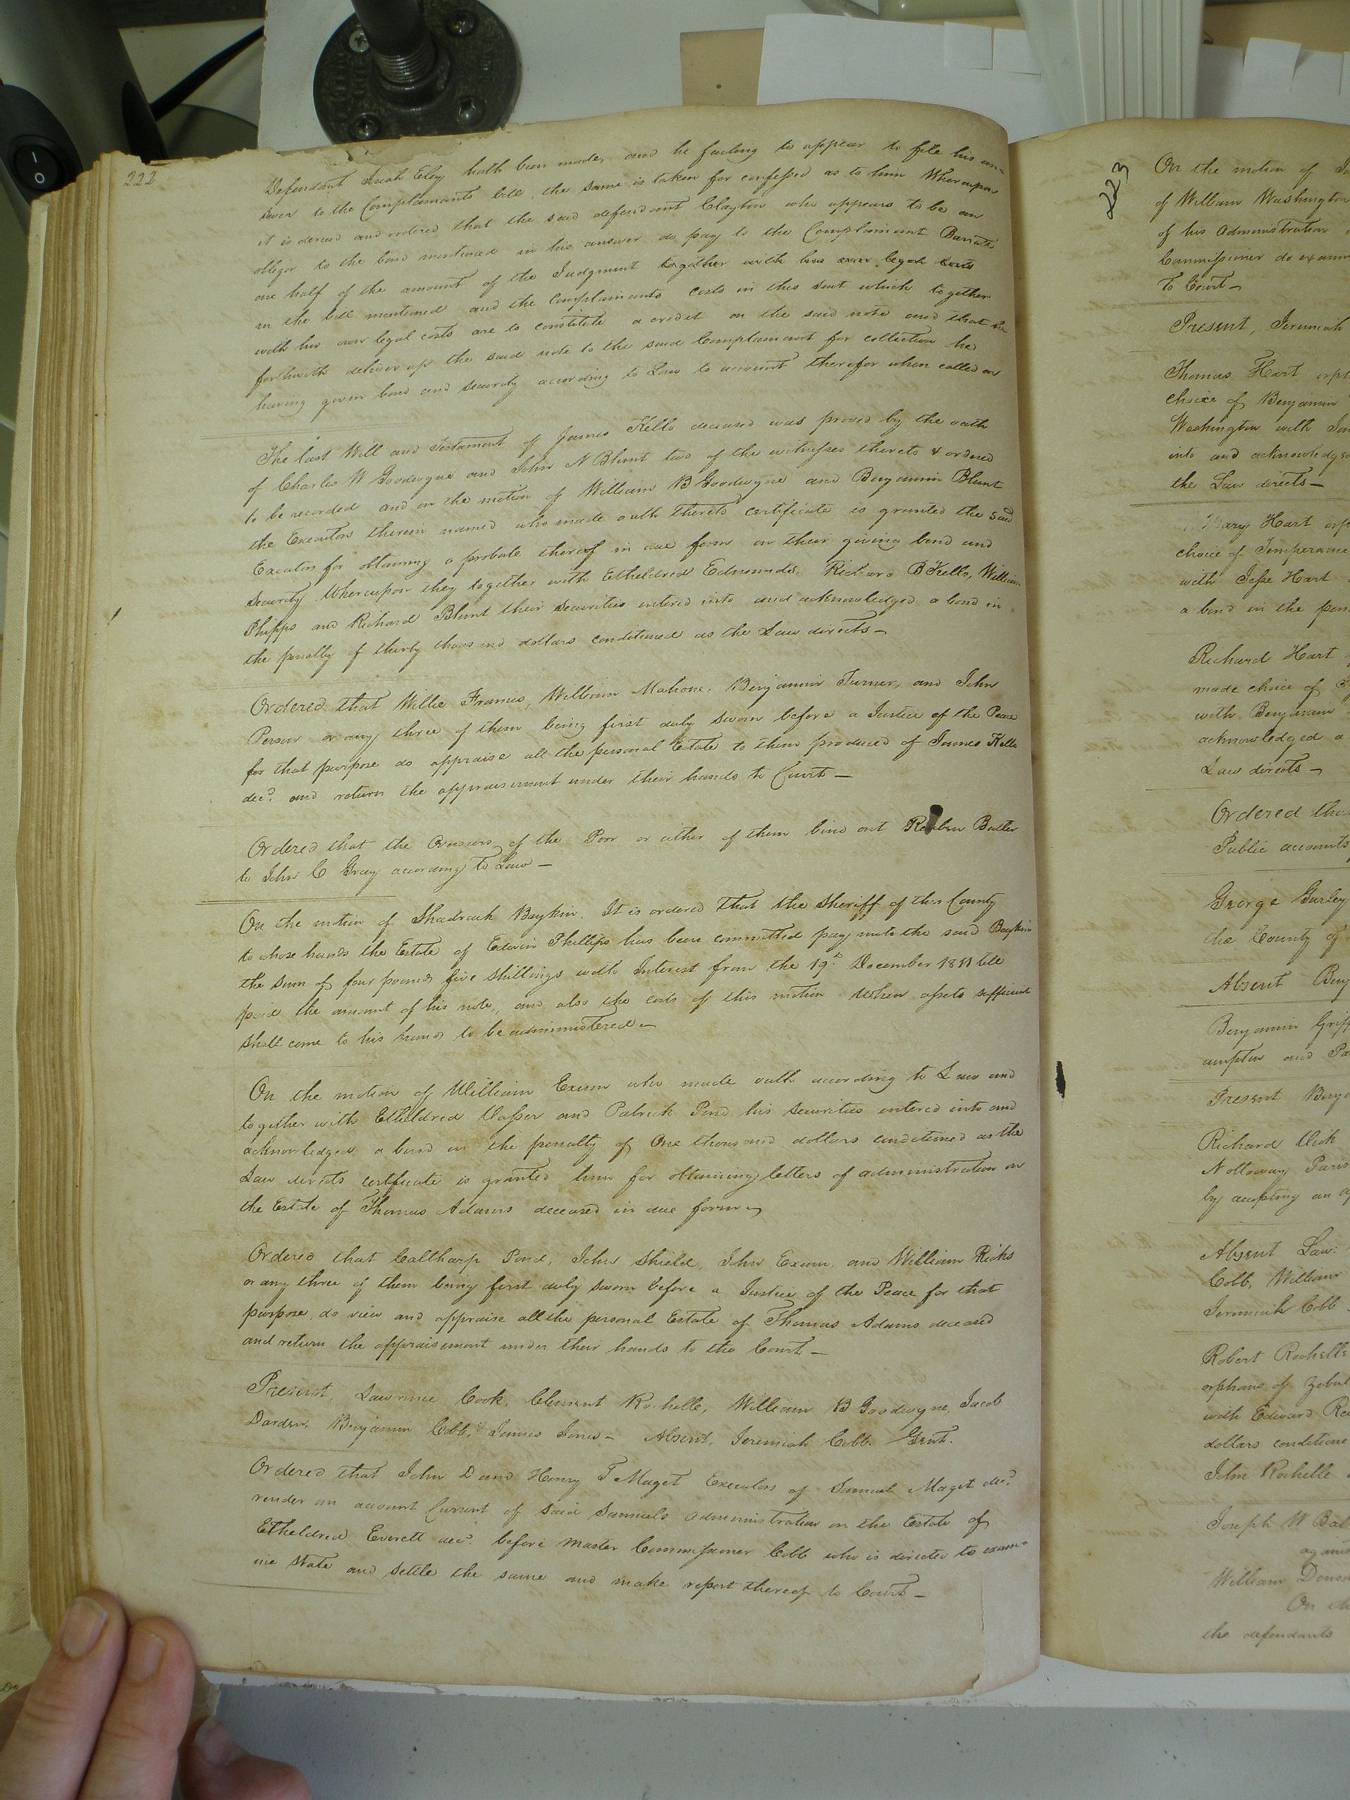 222
Defendant Eley hath been made, and he failing to appear to file his an-
swer to the Complainants bill, the same is taken for confessed as to him Whereupon
it is decreed and ordered that the said defendant Clayton who appears to be an
obligor to the bond mentioned in his answer do pay to the Complainant Barrett
one half of the amount of the Judgment together with his own legal costs
in the bill mentioned and the Complainants costs in this suit which together
with his own legal costs are to constitute a credit on the said note and that he
forthwith deliver up the said note to the said Complainant for collection he
having given bond and security according to Law to account therefor when called on
The last Will and Testament of James Kello deceased was proved by the oath
of Charles W Goodwyne and John N Blunt two of the witnesses thereto & ordered
to be recorded and on the motion of William B Goodwyne and Benjamin Blunt
the Executors therein named who made oath thereto certificate is granted the said
Executors for obtaining a probate thereof in due form on their giving bond and
security Whereupon they together with Etheldred Edmunds, Richard B Kello, William
Phipps and Richard Blunt their securities entered into and acknowledged a bond in
the penalty of thirty thousand dollars conditioned as the Law directs—
Ordered that Willie Francis, William Mahone, Benjamin Turner, and John
Person or any three of them being first duly sworn before a Justice of the Peace
for that purpose do appraise all the personal Estate to them produced of James Kello
decd. and return the appraisement under their hands to Court—
Ordered that the Overseers of the Poor or either of them bind out Reuben Butler
to John C Gray according to Law—
On the motion of Shadrach Boykin. It is ordered that the Sheriff of this County
to whose hands the Estate of Edwin Phillips has been committed pay unto the said Boykin
the sum of four pounds five shillings with Interest from the 19th December 1811 till
paid the amount of his note, and also the costs of this motion when assets sufficient
shall come to his hands to be administered—
On the motion of William Exum who made oath according to Law and
together with Etheldred Vasser and Patrick Pond his securities entered into and
acknowledged a bond in the penalty of One thousand dollars conditioned as the
Law directs certificate is granted him for obtaining letters of administration on
the Estate of Thomas Adams deceased in due form—
Ordered that Calthorp Pond, John Shield, John Exum, and William Ricks
or any three of them being first duly sworn before a Justice of the Peace for that
purpose, do view and appraise all the personal Estate of Thomas Adams deceased
and return the appraisement under their hands to the Court—
Present, Lawrence Cook, Clement Rochelle, William B Goodwyne, Jacob
Darden, Benjamin Cobb, James Jones— Absent, Jeremiah Cobb Gent.
Ordered that John D and Henry T Maget Executors of Samuel Maget decd.
render an account Current of said Samuels administration on the Estate of
Etheldred Everett decd. before Master Commissioner Cobb who is directed to exam-
ine state and settle the same and make report thereof to Court—
223
On the motion of
of William Washington
of his administration
Commissioner do exam
to Court—
Present, Jeremiah
Thomas Hart orph
choice of Benjamin
Washington with
into and acknowledge
the Law directs—
Mary Hart orp
choice of Temperance
with Jesse Hart
a bond in the pen
Richard Hart
made choice of
with Benjamin
acknowledged a
Law directs—
Ordered that
Public accounts
George Gurley
the County of
Absent Benj
Benjamin Griff
ampton and Pa
Present Benj
Richard
Nottoway Paris
by accepting an
Absent Law:
Cobb, William
Jeremiah Cobb
Robert Rochelle
orphans of
with Edward
dollars conditione
John Rochelle
Joseph W
William
On
the defendants